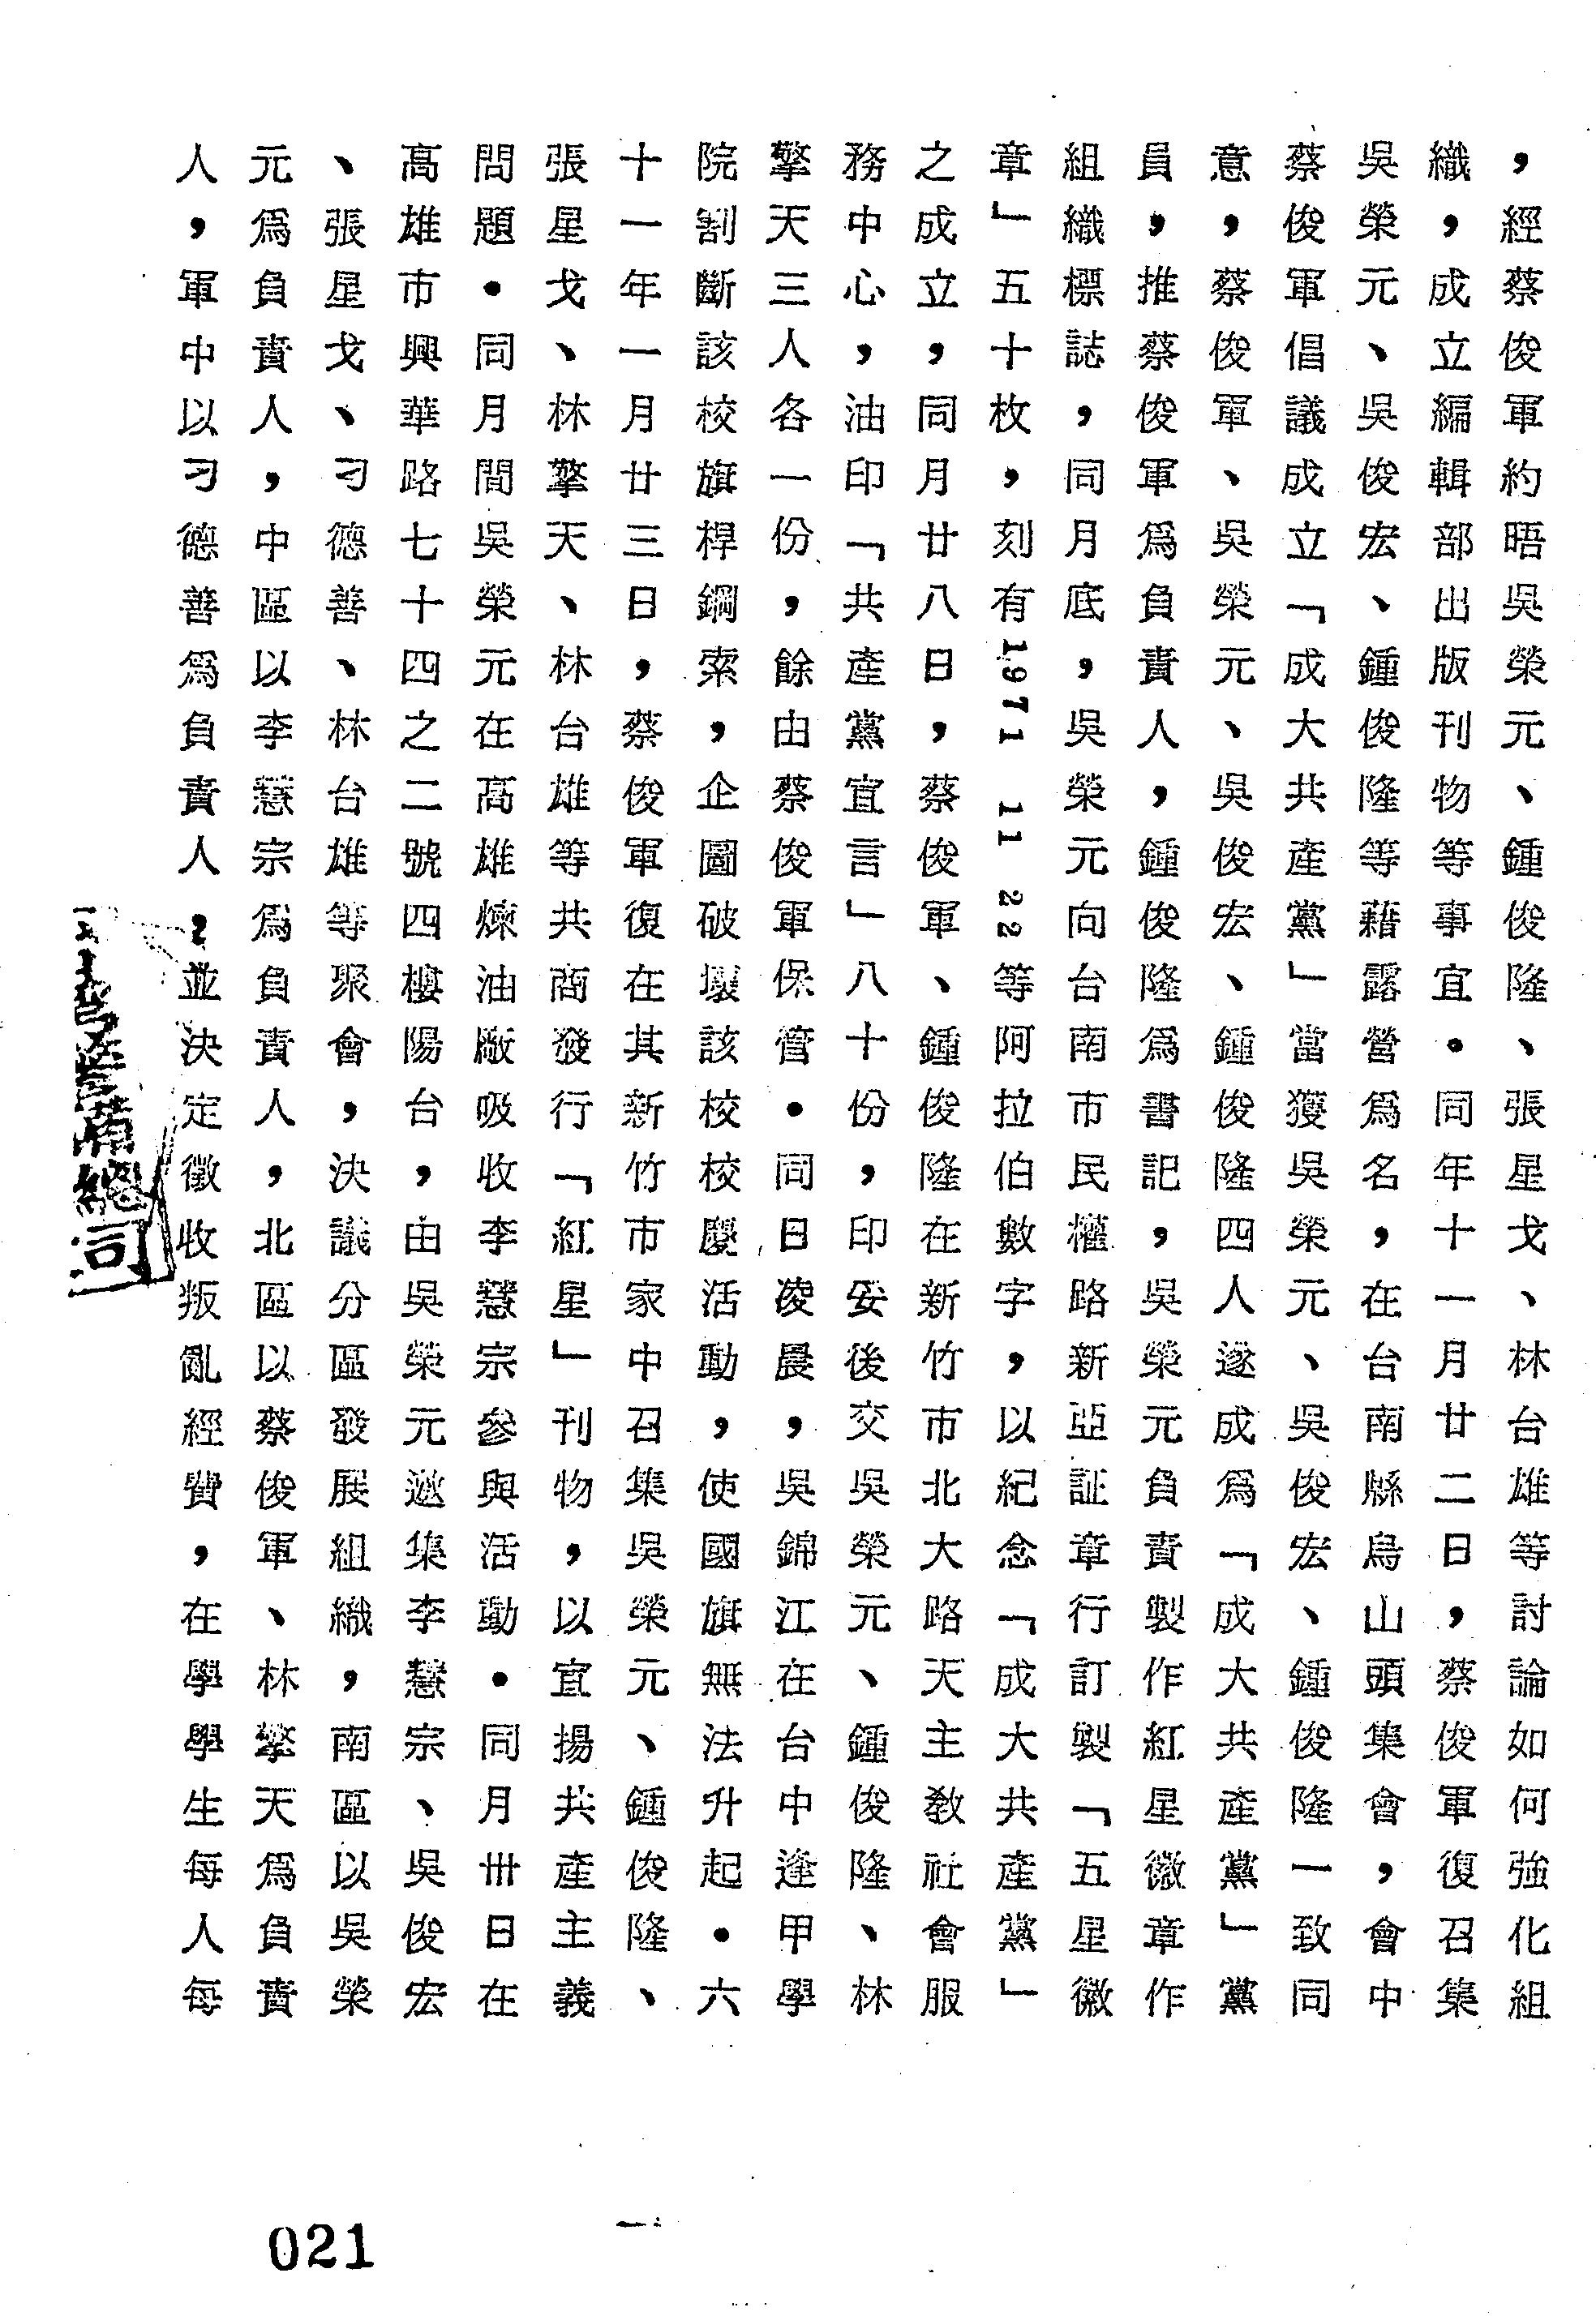 ，經蔡俊軍約晤吳榮元、鍾俊隆、張星戈、林台雄等討論如何強化組
織，成立編輯部出版刊物等事宜。同年十一月廿二日，蔡俊軍復召集
吳榮元、吳俊宏、鍾俊隆等藉露營為名，在台南縣烏山頭集會，會中
蔡俊軍倡議成立「成大共產黨」當獲吳榮元、吳俊宏、鍾俊隆一致同
意，蔡俊軍、吳榮元、吳俊宏、鍾俊隆四人遂成為「成大共產黨」黨
員，推蔡俊軍為負責人，鍾俊隆為書記，吳榮元負責製作紅星徽章作
組織標誌，同月底，吳榮元向台南市民權路新亞証章行訂製「五星徽
章」五十枚，刻有1971 11 22等阿拉伯數字，以紀念「成大共產黨」
之成立，同月廿八日，蔡俊軍、鍾俊隆在新竹市北大路天主教社會服
務中心，油印「共產黨宣言」八十份，印妥後交吳榮元、鍾俊隆、林
擎天三人各一份，餘由蔡俊軍保管。同日凌晨，吳錦江在台中逢甲學
院割斷該校旗桿鋼索，企圖破壞該校校慶活動，使國旗無法升起。六
十一年一月廿三日，蔡俊軍復在其新竹市家中召集吳榮元、鍾俊隆、
張星戈、林擎天、林台雄等共商發行「紅星」刊物，以宣揚共產主義
問題。同月間吳榮元在高雄煉油廠吸收李慧宗參與活動。同月卅日在
高雄市興華路七十四之二號四樓陽台，由吳榮元邀集李慧宗、吳俊宏
、張星戈、刁德善、林台雄等聚會，決議分區發展組織，南區以吳榮
元為負責人，中區以李慧宗為負責人，北區以蔡俊軍、林擎天為負責
人，軍中以刁德善為負責人，並決定徵收叛亂經費，在學學生每人每
021